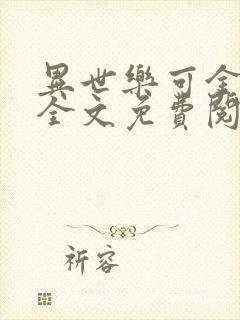 異世樂可全
全文免費閱
祈容